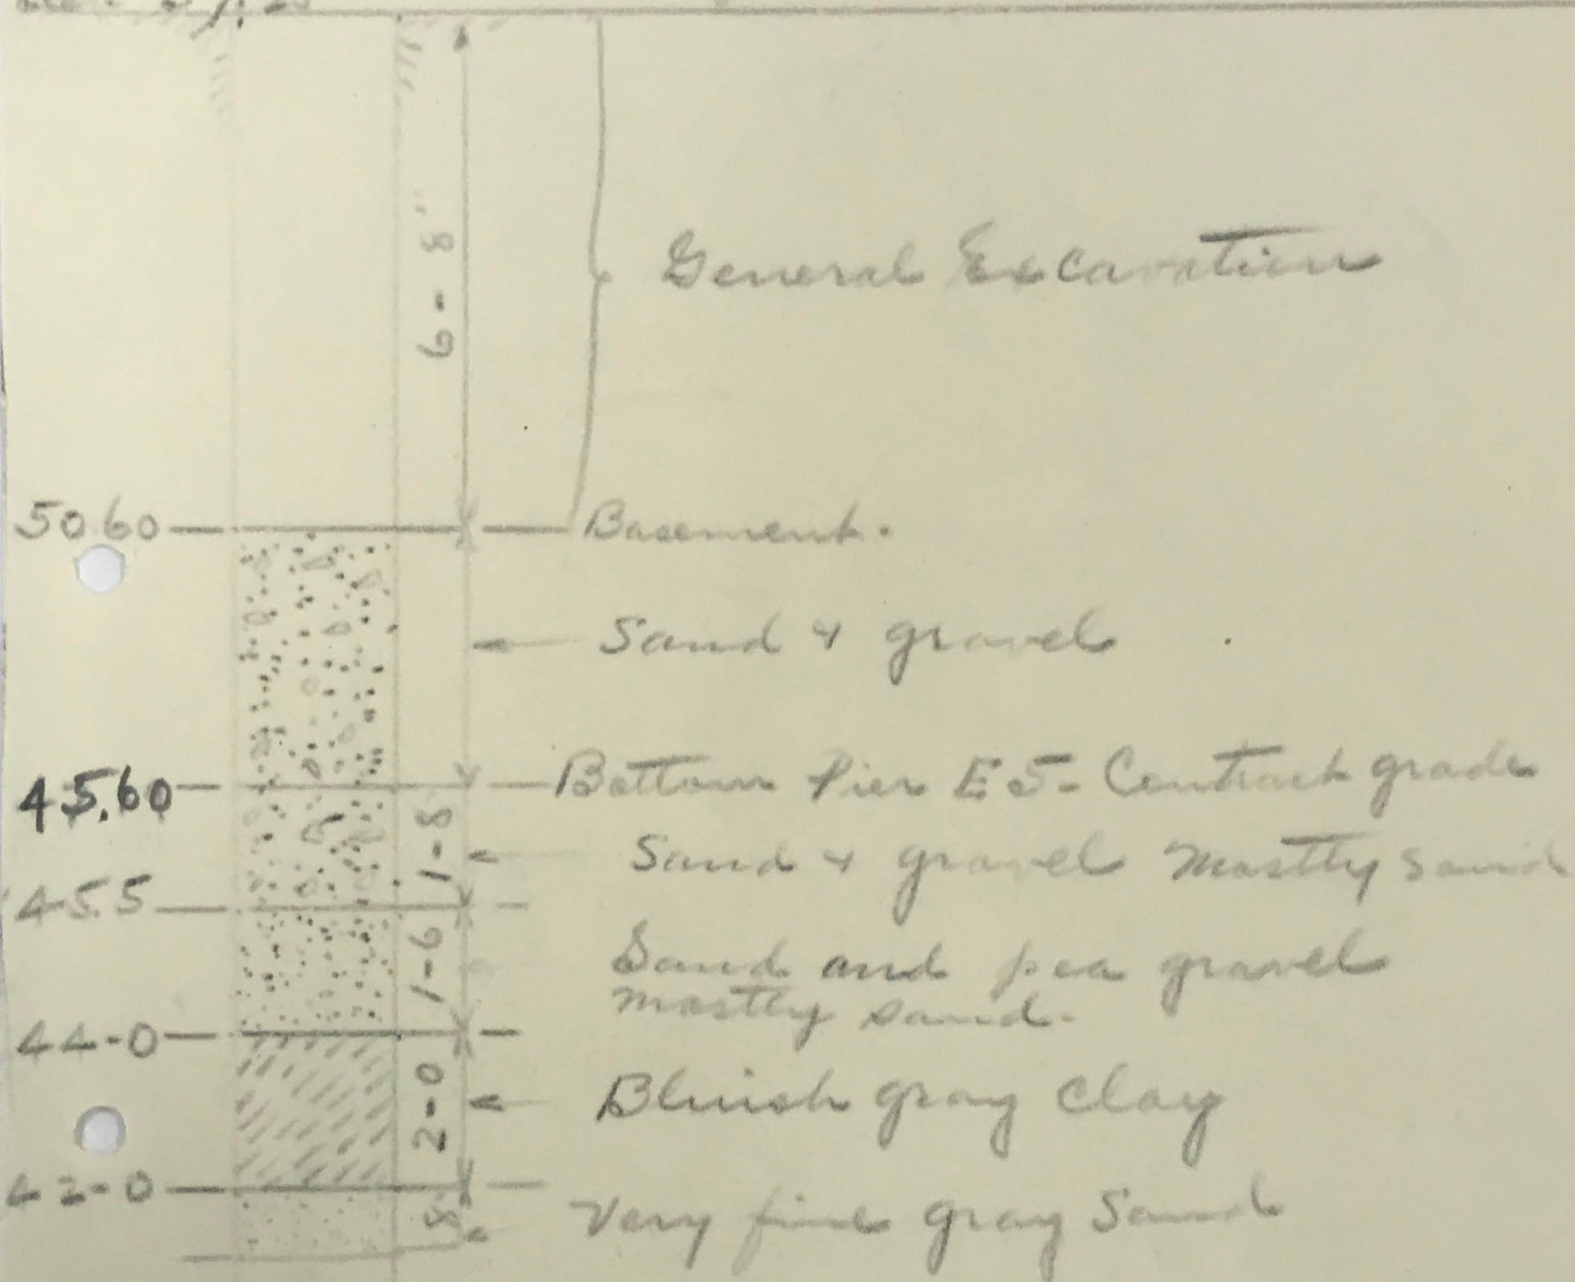 6-8"
General Excavation
50.60 Basement.
Sand & gravel
45.60 Bottom Pier E5- Contract grade
1-8 Sand & gravel mostly sand
45.5
1-6 Sand and pea gravel
mostly sand.
44-0
2-0 Bluish gray clay
42-0
8 Very fine gray Sand